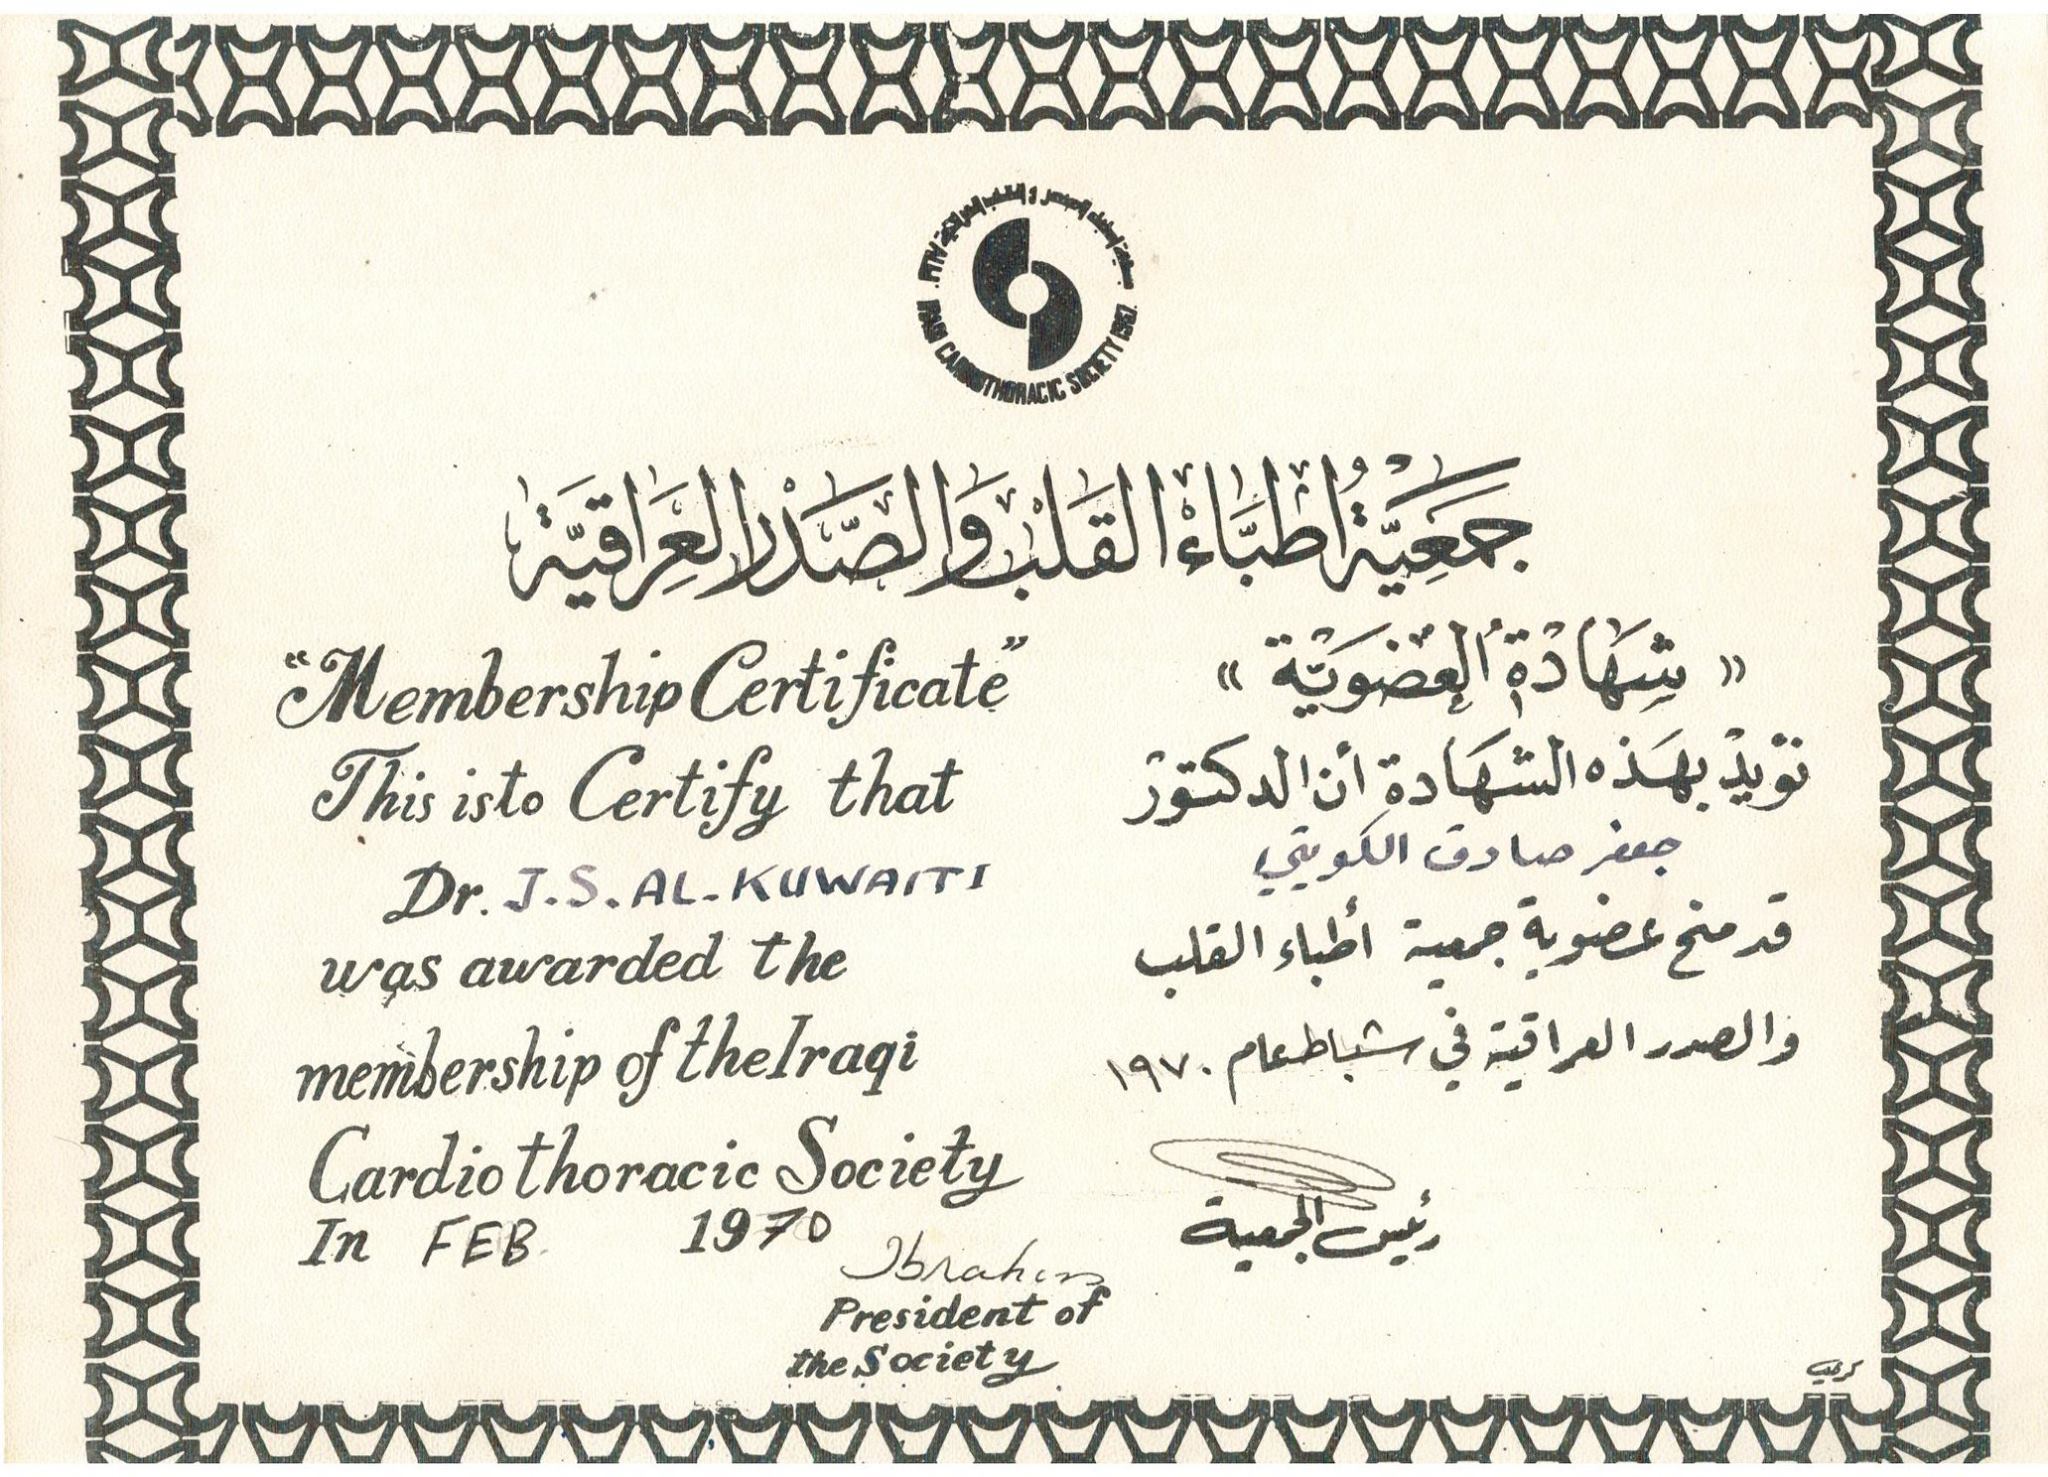 جمعية أطباء الصدر و القلب العراقية ١٩٦٧.
IRAQI CARDIOTHORACIC SOCIETY 1967.
جَمْعِيَّةُ اطِبَّاءْ القَلْب وَالصَّدْر العِرَاقِيَّة
"Membership Certificate"
This is to Certify that
Dr. J.S. AL-KUWAITI
was awarded the
membership of the Iraqi
Cardiothoracic Society
In FEB. 1970
Ibrahim
President of
the Society
« شِهَادَةُ العُضْوِيَّة »
نؤيد بهَذه الشهَادة أن الدكتور
جعفر صادق الكويتي
قد منح عضوية جمعية أطباء القلب
والصدر العراقية في شباط عام ١٩٧٠
رئيس الجمعية